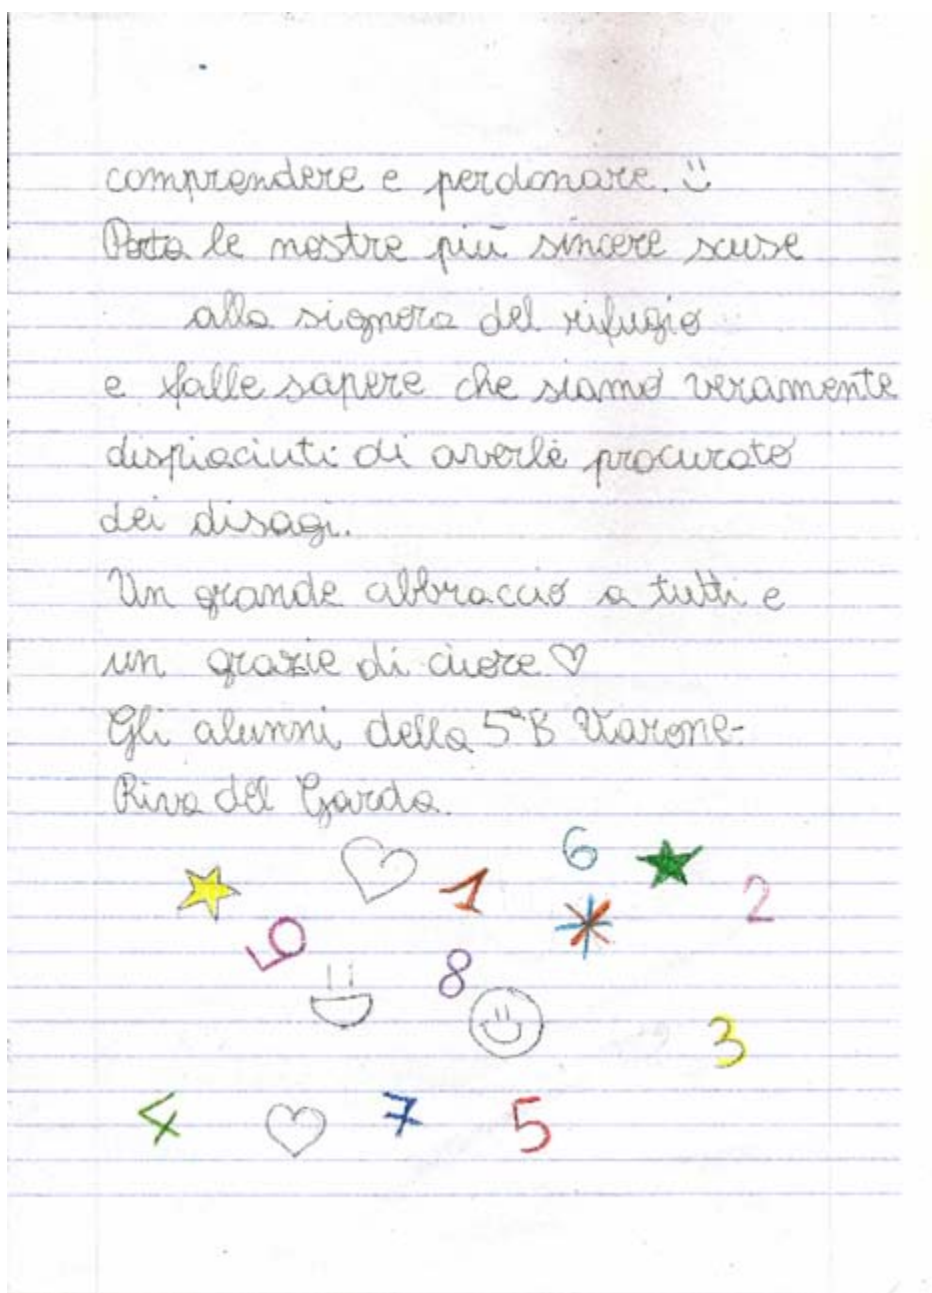 comprendere e perdonare. :)
Porta le nostre più sincere scuse
alla signora del rifugio
e falle sapere che siamo veramente
dispiaciuti di averle procurato
dei disagi.
Un grande abbraccio a tutti e
un grazie di cuore ♡
Gli alunni della 5ªB Varone-
Riva del Garda.
6
1
2
9
8
3
4 7 5